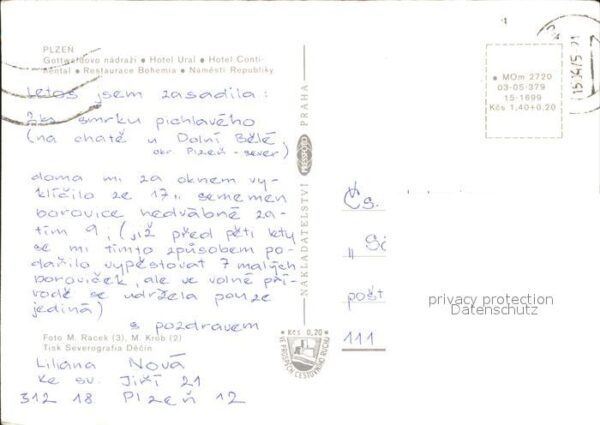 PLZEŇ
Gottwaldovo nádraží ● Hotel Ural ● Hotel Conti-
nental ● Restaurace Bohemia ● Náměstí Republiky
Letos jsem zasadila:
2ks smrku pichlavého
(na chatě u Dolní Bělé,
okr Plzeň-sever)
doma mi za oknem vy-
klíčilo ze 17. sememen
borovice hedvábné za-
tím 9, (již před pěti lety
se mi tímto způsobem po-
dařilo vypěstovat 7 malých
boroviček, ale ve volné pří-
rodě se udržela pouze
jediná)
s pozdravem
Foto M. Racek (3), M. Krob (2)
Tisk Severografia Děčín
Liliana Nová
Ke sv. Jiří 21
312 18 Plzeň 12
NAKLADATELSTVÍ PRESSFOTO PRAHA
● Kčs 0,20 ●
VE PROSPĚCH CESTOVNÍHO RUCHU
● MOm 2720
03-05-379
15-1699
Kčs 1,40+0,20
Čs.
pošt
111
privacy protection
Datenschutz